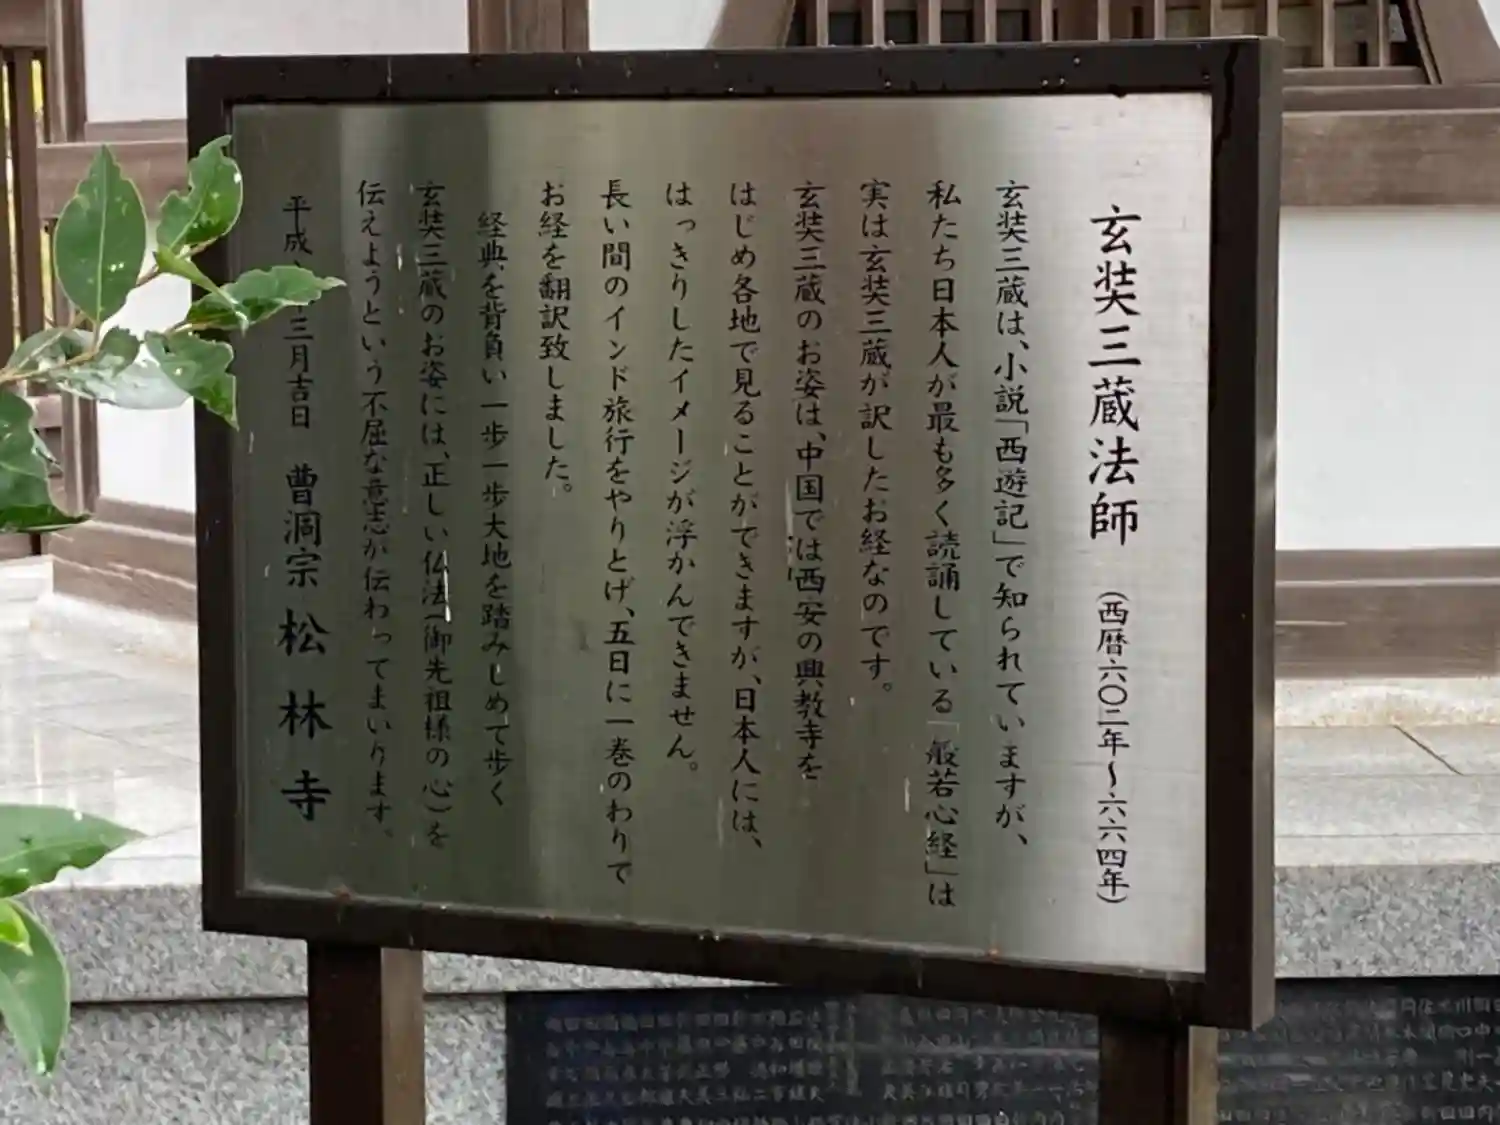 玄奘三蔵法師 (西暦六〇二年〜六六四年)
玄奘三蔵は、小説「西遊記」で知られていますが、
私たち日本人が最も多く読誦している「般若心経」は
実は玄奘三蔵が訳したお経なのです。
玄奘三蔵のお姿は、中国では西安の興教寺を
はじめ各地で見ることができますが、日本人には、
はっきりしたイメージが浮かんできません。
長い間のインド旅行をやりとげ、五日に一巻のわりで
お経を翻訳致しました。
経典を背負い一歩一歩大地を踏みしめて歩く
玄奘三蔵のお姿には、正しい仏法(御先祖様の心)を
伝えようという不屈な意志が伝わってまいります。
平成 三月吉日 曹洞宗 松林寺